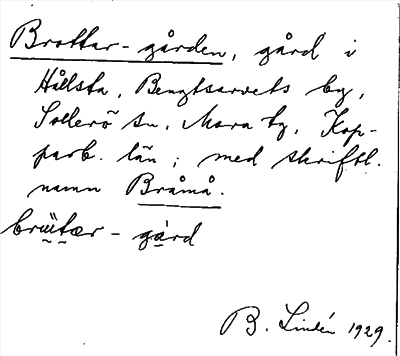 Brottar-gården, gård i
Hållsta, Bengtsarvets by,
Sollerö sn, Mora tg, Kop-
parb. län; med skriftl.
namn Bråmå.
brütær-gård
B. Lindén 1929.